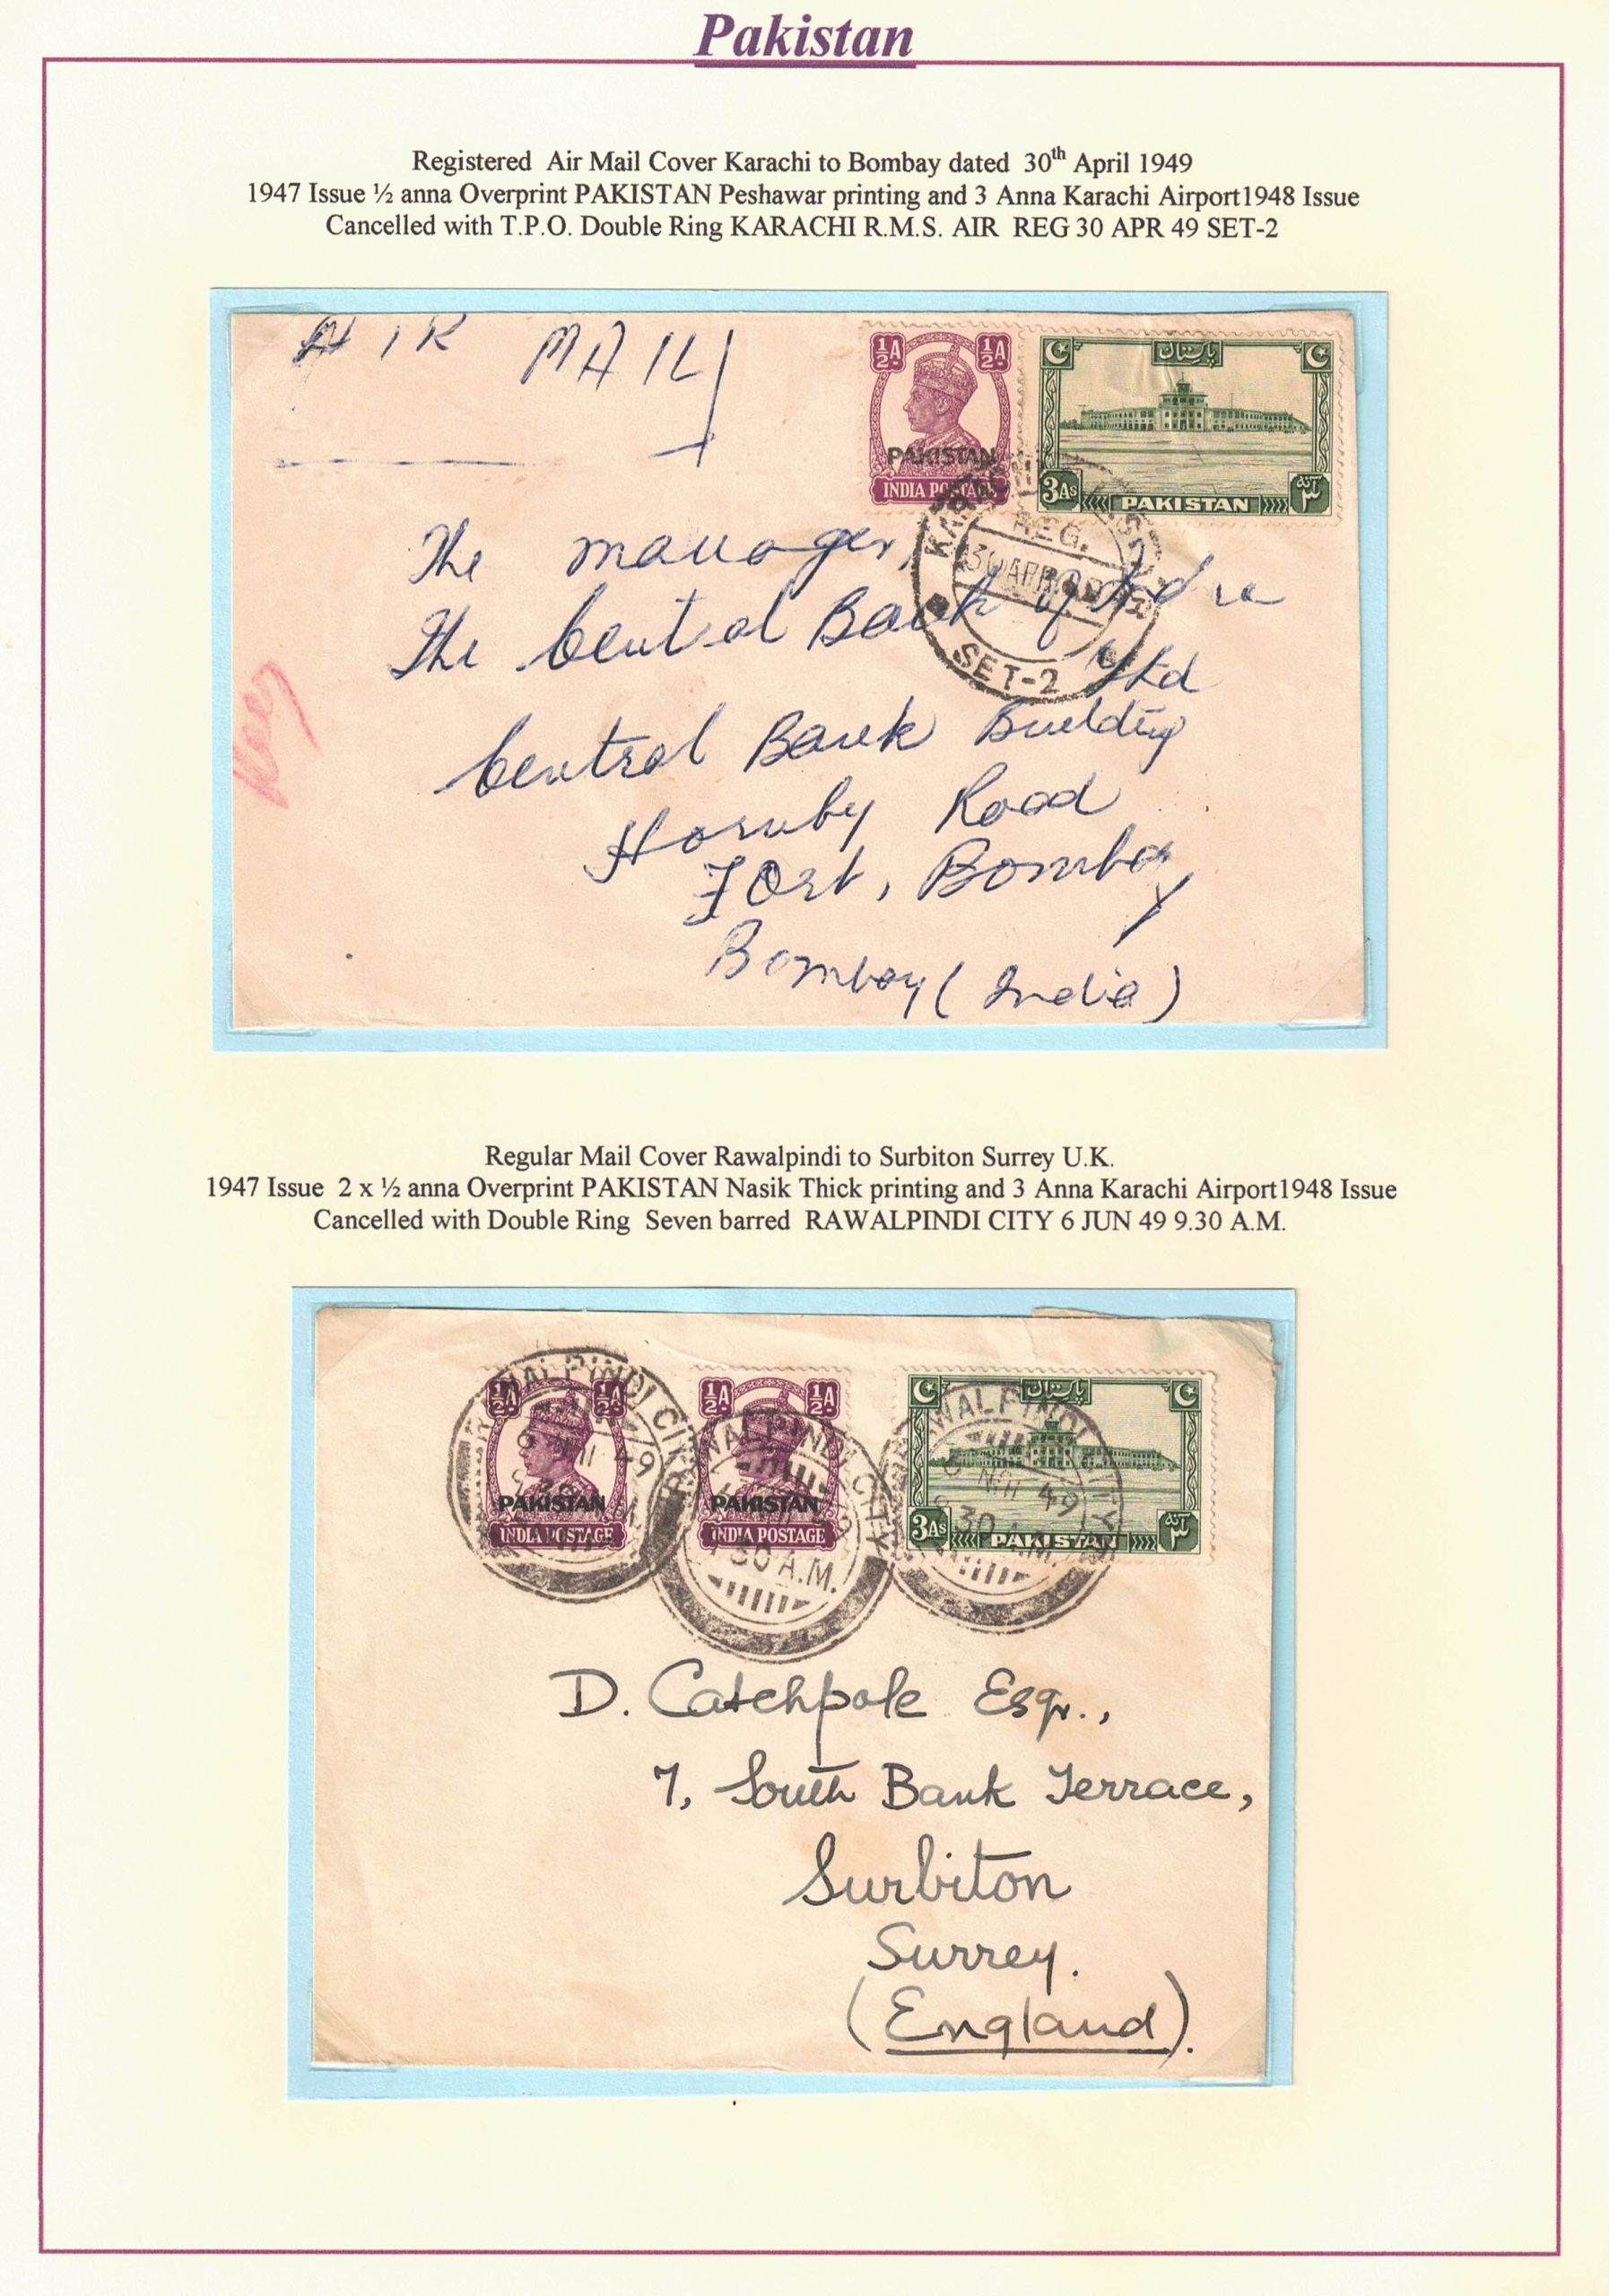 Pakistan
Registered Air Mail Cover Karachi to Bombay dated 30th April 1949
1947 Issue ½ anna Overprint PAKISTAN Peshawar printing and 3 Anna Karachi Airport1948 Issue
Cancelled with T.P.O. Double Ring KARACHI R.M.S. AIR REG 30 APR 49 SET-2
AIR MAIL
½A ½A
PAKISTAN
INDIA POSTAGE
پاکستان
3As PAKISTAN ٣ آنہ
KARACHI
REG.
30 APR
SET-2
The manager,
The Central Bank of India
Ltd
Central Bank Building
Hornby Road
Fort, Bombay
Bombay (India)
Regular Mail Cover Rawalpindi to Surbiton Surrey U.K.
1947 Issue 2 x ½ anna Overprint PAKISTAN Nasik Thick printing and 3 Anna Karachi Airport1948 Issue
Cancelled with Double Ring Seven barred RAWALPINDI CITY 6 JUN 49 9.30 A.M.
½A ½A
PAKISTAN
INDIA POSTAGE
½A ½A
PAKISTAN
INDIA POSTAGE
پاکستان
3As PAKISTAN ٣ آنہ
RAWALPINDI CITY
RAWALPINDI CITY
30 A.M.
RAWALPINDI CITY
49
30 A.M.
D. Catchpole Esqr.,
7, South Bank Terrace,
Surbiton
Surrey.
(England).